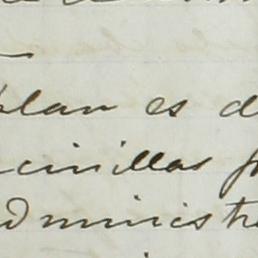 plan es d
cinillas f
dministr